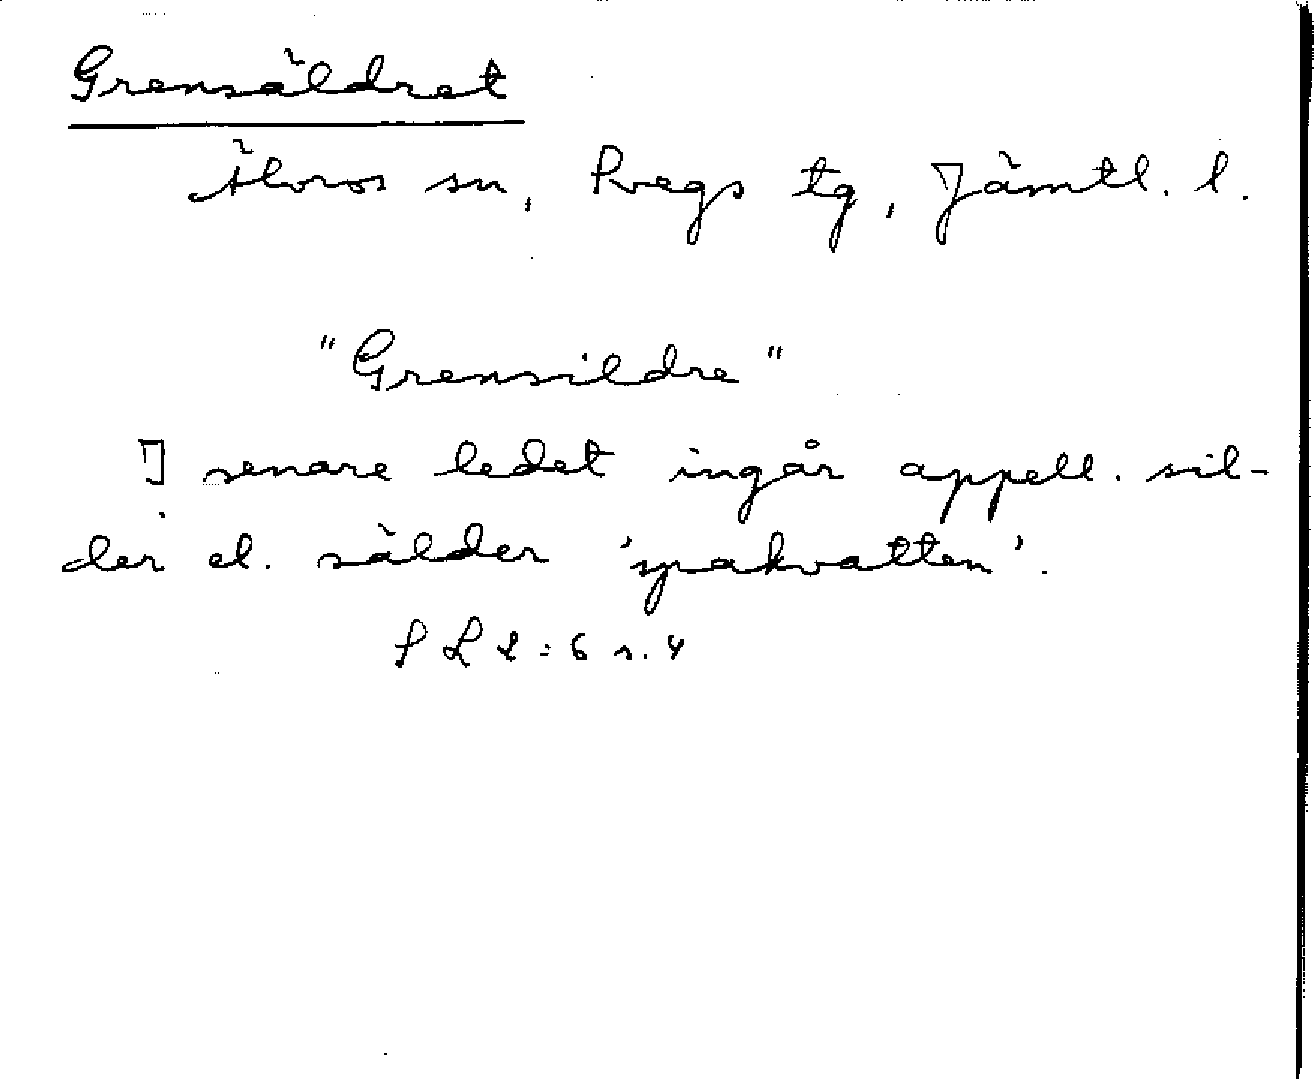 Grensäldret
Älvros sn, Svegs tg, Jämtl. l.
"Grensildre"
I senare ledet ingår appell. sil-
der el. sälder 'spakvatten'.
SLL:6 s. 4